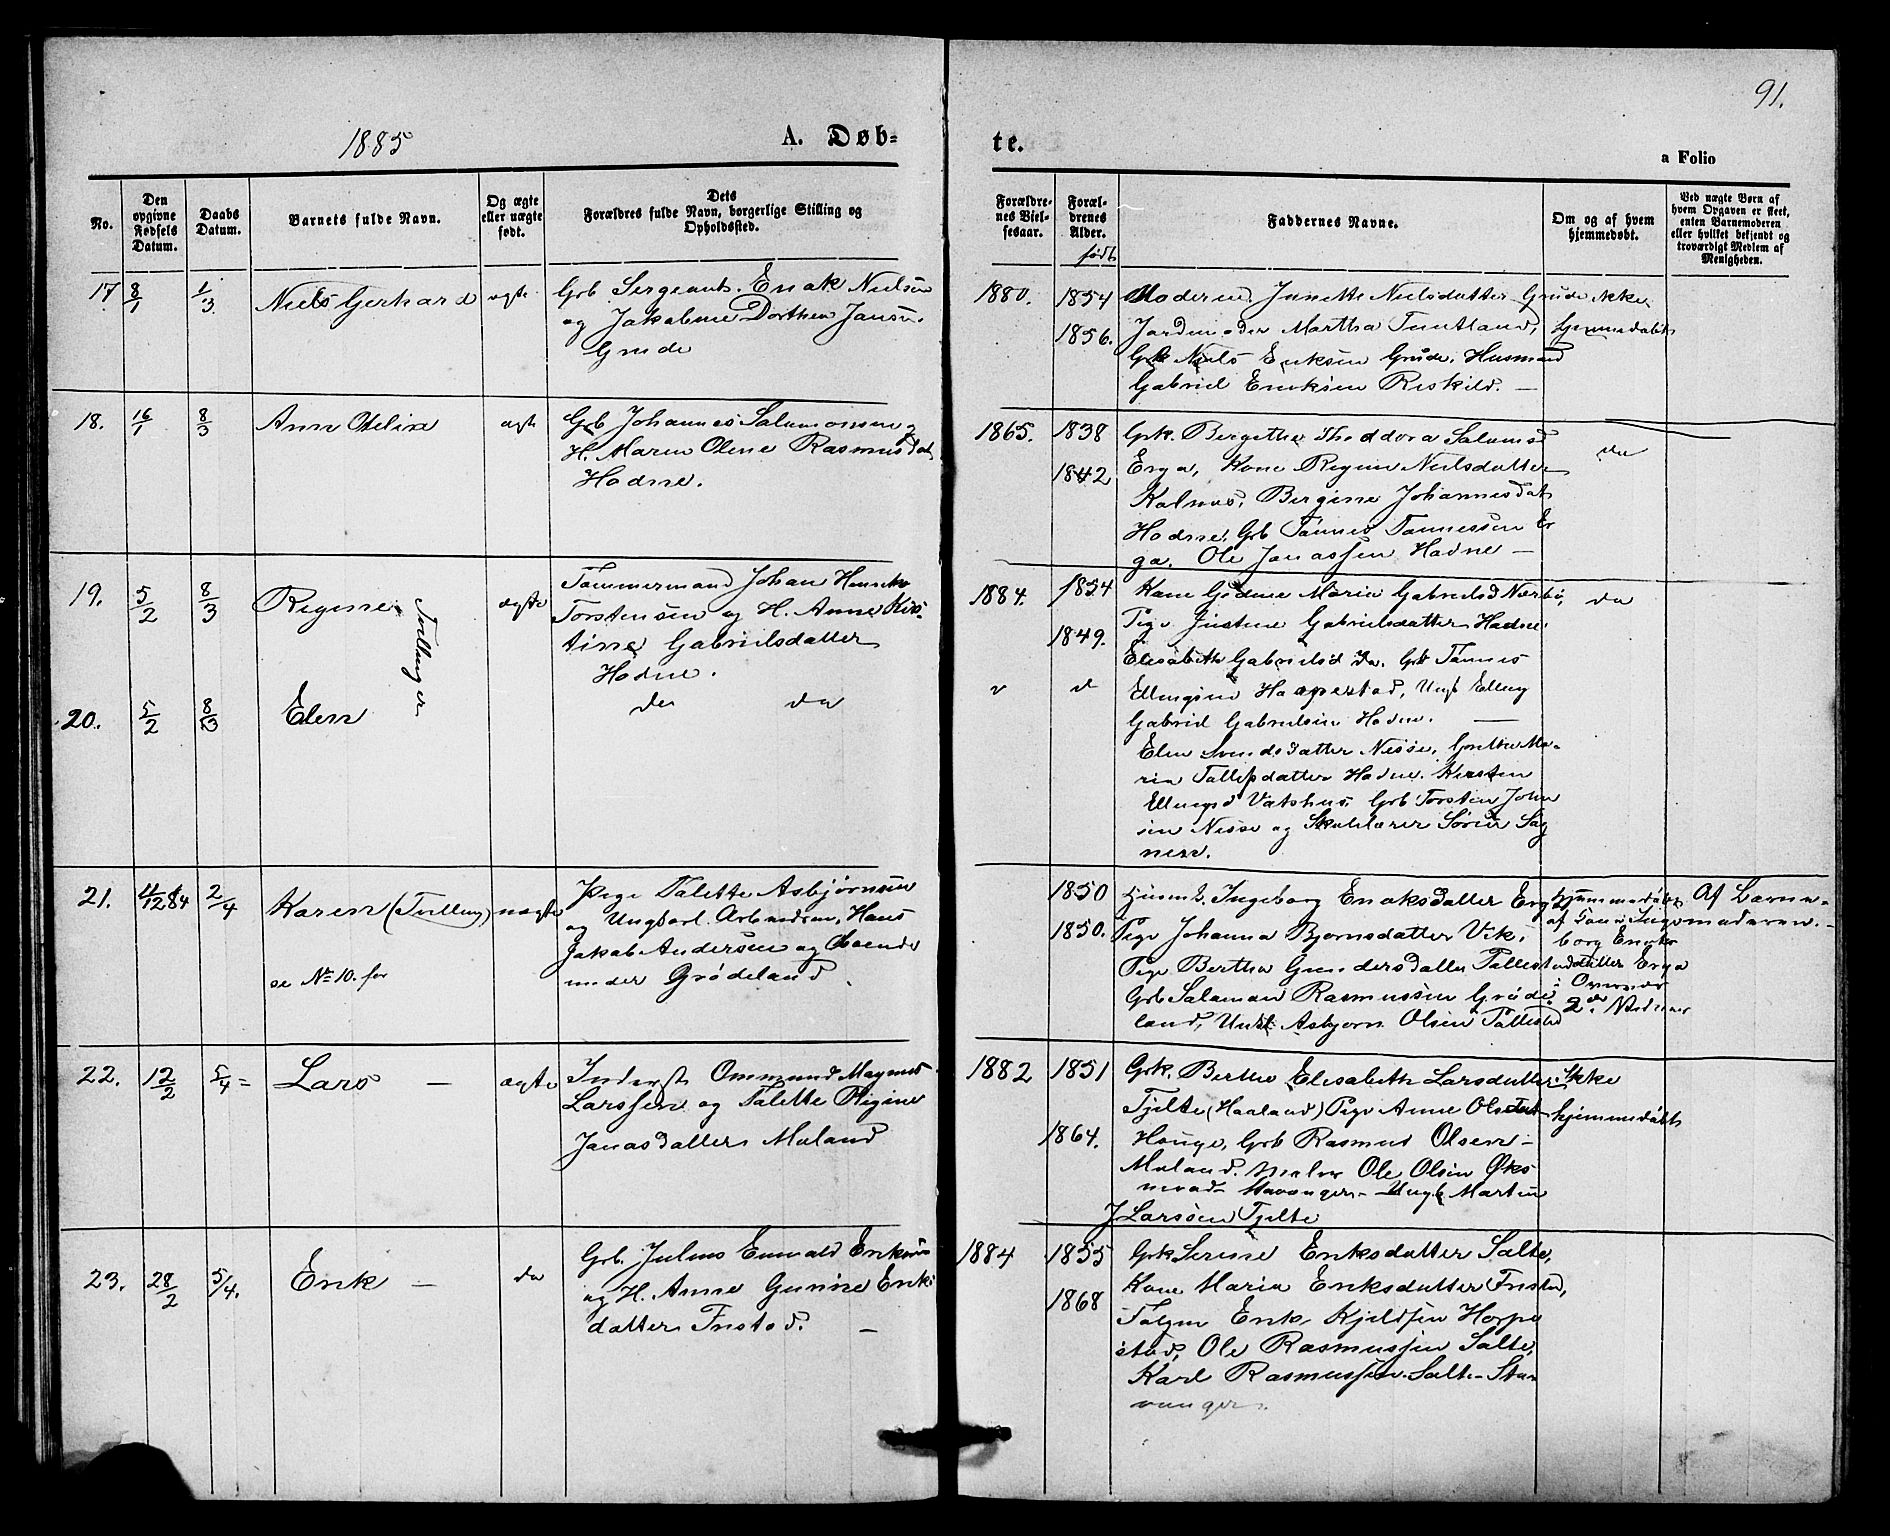 91.
1885
A. Døb-
te.
a Folio
No.
Den
opgivne
Fødsels
Datum.
Daabs
Datum.
Barnets fulde Navn.
Og ægte
eller uægte
født.
Dets
Forældres fulde Navn, borgerlige Stilling og
Opholdssted.
Forældre-
nes Viel-
sesaar.
Foræl-
drenes
Alder.
født
Faddernes Navne.
Om og af hvem
hjemmedøbt.
Ved uægte Børn af
hvem Opgaven er skeet,
enten Barnemoderen
eller hvilket bekjendt og
troværdigt Medlem af
Menigheden.
17 8/1 1/3 Niels Gerhard ægte
Grb Sergeant Enok Nielsen
og Jakobine Dorthea Jansen
Grude
1880. 1854
1856.
Moderen, Jnnette Nielsdatter Grude
Jordemoder Martha Tuntland,
Grb Niels Eriksen Grude, Husmand
Gabriel Eriksen Reskild. —
ikke
hjemmedøbt
18. 16/1 8/3 Ane Otelia ægte
Grb Johannes Salamonsen og
H. Maren Olene Rasmusdat
Hodne.
1865. 1838
1842
Grk. Bergitha Theodora Salamsd
Erga, Kone Regine Nielsdatter
Kalnes, Bergine Johannesdat
Hodne, Grb Tønnes Tønnessen Er
ga. Ole Jonassen Hodne —
da
19. 5/2 8/3 Regine Tvillinger ægte
Tømmermand Johan Henrik
Torstensen og H. Anne Kris-
tine Gabrielsdatter
Hodne.
1884. 1854
1849.
Kone Gødine Maria Gabrielsd Nærbø,
Pige Justine Gabrielsdatter Hodne
Elisabeth Gabrielsd Do. Grb Tønnes
Ellingsen Haapestad, Ungk Elling
Gabriel Gabrielsen Hodne. —
da
20. 5/2 8/3 Elen
do do
Elen Svendsdatter Nesse, Grethe Ma-
ria Tollefsdatter Hodne. Kirsten
Ellingsd Vatshus, Grb Torsten John
sen Nesse og Skolelærer Søren Sog
nen.
21. 4/12 84 2/4 Karen (Tvilling) uægte
se No 10. før
Pige Talette Asbjørnsen
og Ungkarl Arbeidsm. Hans
Jakob Andersen og boende
under Grødeland
1850
1850.
Husm k. Ingeborg Enoksdatter Erga
Pige Johanna Bjørnsdatter Vik,
Pige Bertha Gundersdatter Tollestad
Grb Salamon Rasmussen Grøde-
land, Unkl Asbjørn Olsen Tollestad
Hjemmedøbt
af Inge
borg Enoks
datter Erga
2de Vidner
Af Barne-
moderen. -
22. 12/2 5/4 = Lars — ægte
Inderst Ommund Magnus
Larssen og Talette Regine
Jonasdatter Moland
1882 1851
1864.
Grk. Berthe Elisabeth Larsdatter
Tjelte (Haaland) Pige Anne Olsdat
Hauge, Grb Rasmus Olsen
Moland. Maler Ole Olsen Øks
nevad Stavanger - Ungk Martin
J Larssen Tjelte
Ikke
hjemmedøbt
23. 28/2 5/4. Erik — da
Grb. Julius Enevald Eriksen
og H. Anne Gurine Eriks
datter Fristad. —
1884 1855
1868
Grk Serine Eriksdatter Salte,
Kone Maria Eriksdatter Fristad,
Erik Kjeldsen Horpe
stad, Ole Rasmussen Salte,
Karl Rasmussen Salte - Sta
vanger.